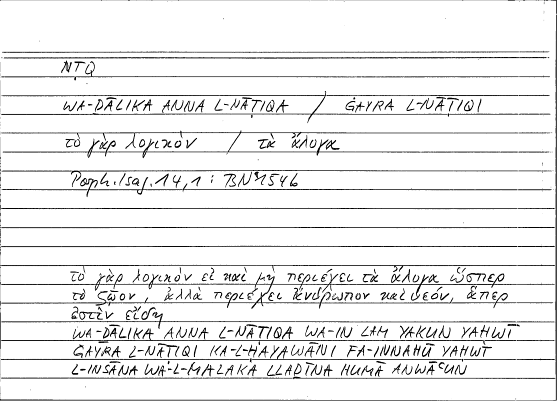 NṬQ
WA-ḎĀLIKA ANNA L-NĀṬIQA / ĠAYRA L-NĀṬIQI
τὸ γὰρ λογικὸν / τὰ ἄλογα
Porph. Isag. 14,1 : BN 1546
τὸ γὰρ λογικὸν εἰ καὶ μὴ περιέχει τὰ ἄλογα ὥσπερ
τὸ ζῷον, ἀλλὰ περιέχει ἄνθρωπον καὶ θεόν, ἅπερ
ἐστὶν εἴδη
WA-ḎĀLIKA ANNA L-NĀṬIQA WA-IN LAM YAKUN YAḤWĪ
ĠAYRA L-NĀṬIQI KA-L-ḤAYAWĀNI FA-INNAHŪ YAḤWĪ
L-INSĀNA WA-L-MALAKA LLAḎĪNA HUMĀ ANWĀʿUN